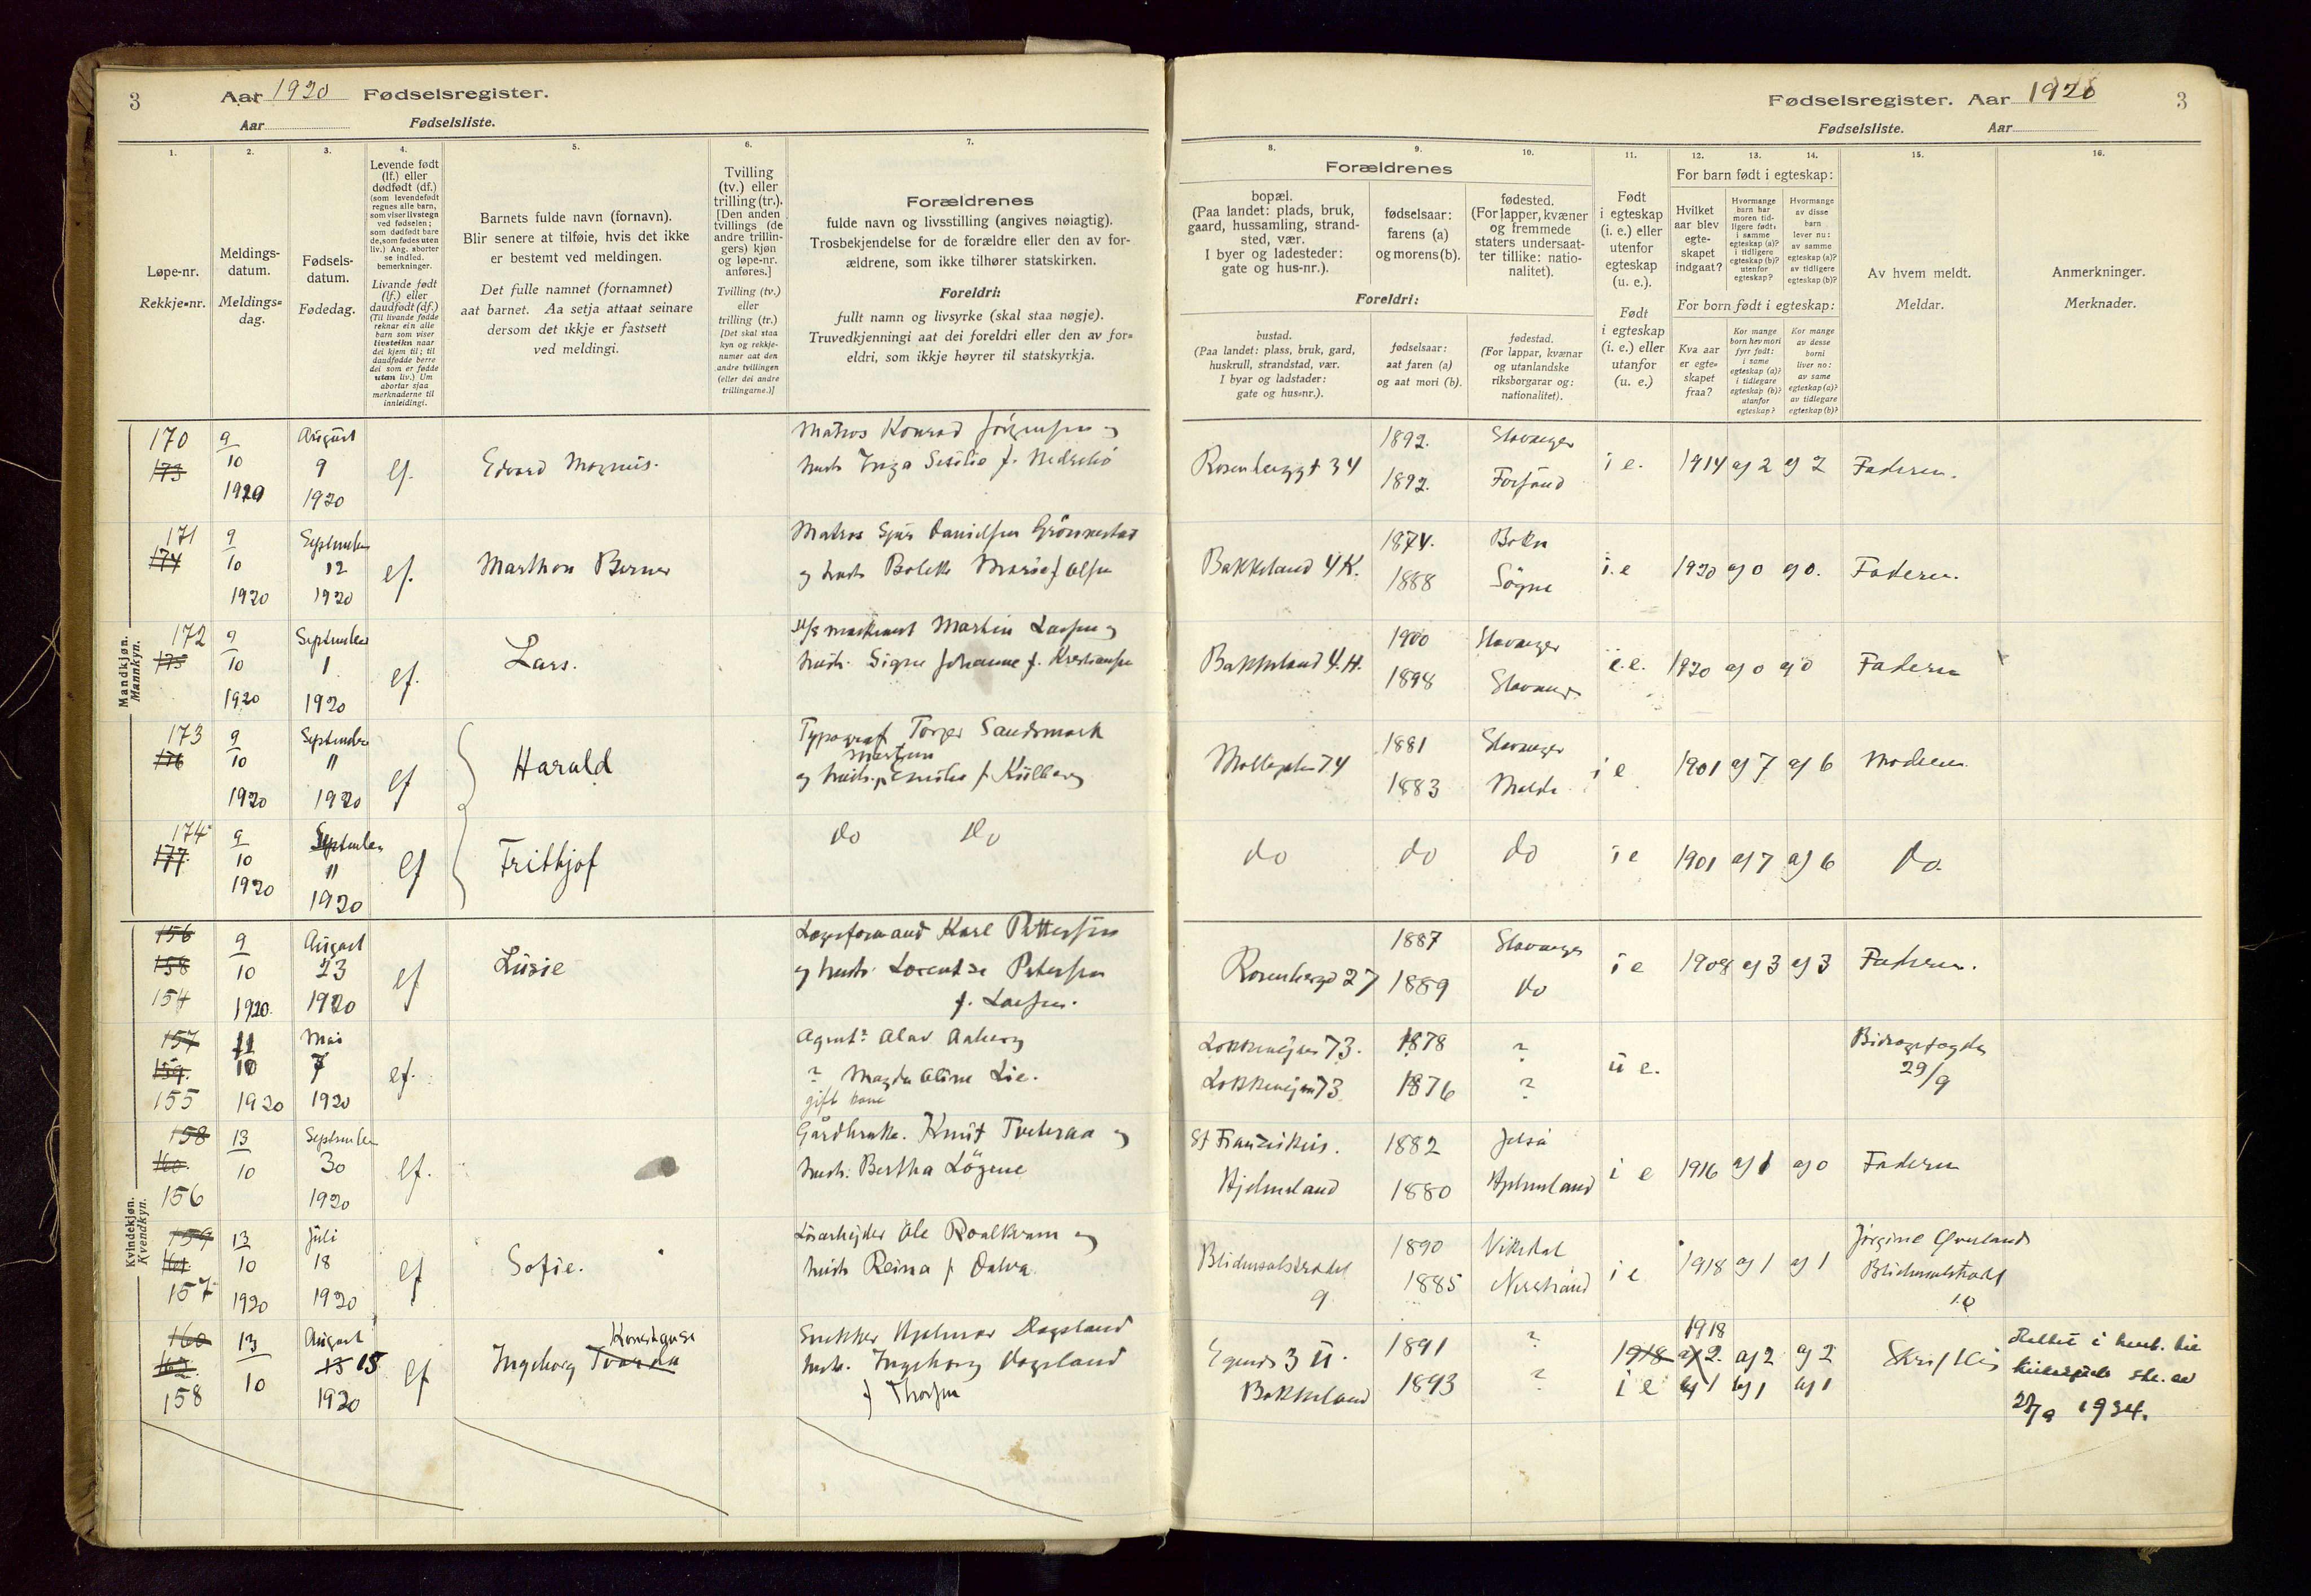 3
Aar 1920 Fødselsregister.
Aar Fødselsliste.
1.
Løpe-nr.
Rekkje-nr.
2.
Meldings-
datum.
Meldings-
dag.
3.
Fødsels-
datum.
Fødedag.
4.
Levende født
(lf.) eller
dødfødt (df.)
(som levendefødt
regnes alle barn,
som viser livstegn
ved fødselen;
som dødfødt bare
de, som fødes uten
liv.) Ang. aborter
se indled.
bemerkninger.
Livande født
(lf.) eller
daudfødt (df.)
(Til livande fødde
reknar ein alle
barn som viser
livsteikn naar
dei kjem til; til
daudfødde berre
dei som er fødde
utan liv.) Um
abortar sjaa
merknaderne til
innleidingi.
5.
Barnets fulde navn (fornavn).
Blir senere at tilføie, hvis det ikke
er bestemt ved meldingen.
Det fulle namnet (fornamnet)
aat barnet. Aa setja attaat seinare
dersom det ikkje er fastsett
ved meldingi.
6.
Tvilling
(tv.) eller
trilling (tr.).
[Den anden
tvillings (de
andre trillin-
gers) kjøn
og løpe-nr.
anføres.]
Tvilling (tv.)
eller
trilling (tr.)
[Det skal staa
kyn og rekkje-
numer aat den
andre tvillingen
(eller dei andre
trillingarne.)]
7.
Forældrenes
fulde navn og livsstilling (angives nøiagtig).
Trosbekjendelse for de forældre eller den av for-
ældrene, som ikke tilhører statskirken.
Foreldri:
fullt namn og livsyrke (skal staa nøgje).
Truvedkjenningi aat dei foreldri eller den av for-
eldri, som ikkje høyrer til statskyrkja.
Mandkjøn.
Mannkyn.
170
173
9
10
1920
August
9
1920
lf.
Edvard Magnus.
Matros Konrad Jörgensen og
hust. Inga Sesilie f. Nedrebö
171
174
9
10
1920
September
12
1920
lf.
Marthon Berner
Matros Sjur Danielsen Grönnestad
og hust. Bolette Marie f Olsen
172
175
9
10
1920
September
1
1920
lf.
Lars.
Martin Larsen og
hust. Signe Johanne f. Kristiansen
173
176
9
10
1920
September
11
1920
lf
Harald
Typograf Torger Sandsmark
og hust. Emilie f. Kulberg
174
177
9
10
1920
September
11
1920
lf
Frithjof
do do
Kvindekjøn.
Kvendkyn.
156
158
154
9
10
1920
August
23
1920
lf
Lusie
Lagerformand Karl Pettersen
og hust. Lorentse Petersen
f. Larsen.
157
159
155
11
10
1920
Mai
7
1920
lf.
Agent: Olav Aaberg
? Magda Oline Lie.
gift kone
158
160
156
13
10
September
30
1920
lf.
Gårdbruk. Knut Tveteraa og
hust. Bertha Lögene
159
161
157
13
10
1920
Juli
18
1920
lf
Sofie.
Lösarbeider Ole Roalkvam og
hust Reina f Dalva
160
162
158
13
10
August
13 15
1920
lf
Konstanse
Ingeborg Tvorda
Snekker Hjalmar Dagsland
hust. Ingeborg Dagsland
f Thorsen
Fødselsregister. Aar 1920
3
Fødselsliste. Aar
8.
Forældrenes
bopæl.
(Paa landet: plads, bruk,
gaard, hussamling, strand-
sted, vær.
I byer og ladesteder:
gate og hus-nr.).
Foreldri:
bustad.
(Paa landet: plass, bruk, gard,
huskrull, strandstad, vær.
I byar og ladstader:
gate og hus-nr.).
9.
fødselsaar:
farens (a)
og morens (b).
fødselsaar:
aat faren (a)
og aat mori (b).
10.
fødested.
(For lapper, kvæner
og fremmede
staters undersaat-
ter tillike: natio-
nalitet).
fødestad.
(For lappar, kvænar
og utanlandske
riksborgarar og:
nationalitet).
11.
Født
i egteskap
(i. e.) eller
utenfor
egteskap
(u. e.).
Født
i egteskap
(i. e.) eller
utanfor
(u. e.)
For barn født i egteskap:
12.
Hvilket
aar blev
egte-
skapet
indgaat?
13.
Hvormange
barn har
moren tid-
ligere født:
i samme
egteskap (a)?
i tidligere
egteskap (b)?
utenfor
egteskap?
14.
Hvormange
av disse
barn
lever nu:
av samme
egteskap (a)?
av tidligere
egteskap (b)?
For born født i egteskap:
Kva aar
er egte-
skapet
fraa?
Kor mange
born hev mori
fyrr født:
i same
egteskap (a)?
i tidlegare
egteskap (b)?
utanfor
egteskap?
Kor mange
av desse
borni
liver no:
av same
egteskap (a)?
av tidlegare
egteskap (b)?
15.
Av hvem meldt.
Meldar.
16.
Anmerkninger.
Merknader.
Rosenberggt 34
1892. Stavanger
1892. Forsand
i e. 1914 a) 2 a) 2 Faderen.
Bakkeland 4 K.
1874. Bokn
1888 Sögne
i. e 1920 a) 0 a) 0. Faderen.
Bakkeland 4. H.
1900 Stavanger
1898 Stavanger
i. e. 1920 a) 0 a) 0 Faderen
74
1881 Stavanger
1883 Molde
i e 1901 a) 7 a) 6 Moderen.
do do do i e 1901 a) 7 a) 6 do.
27
1887 Stavanger
1889 do
i e 1908 a) 3 a) 3 Faderen.
Lokkeveien 73. 1878 ?
Lokkeveien 73 1876 ?
u e.
Bidragsfogden
29/9
St Franciskus.
Hjelmeland
1882 Jelsa
1880 Hjelmeland
i e 1916 a) 1 a) 0 Faderen
Blidensolstredet
9
1890 Vikedal
1885 Nerstrand
i e 1918 a) 1 a) 1
Jörgine Överland
Blidensolstredet
10
3 U.
Bakkeland
1891 ?
1893 ?
1918
1918 a) 2. a) 2 a) 2
i e b) 1 b) 1 b) 1
Skriftlig
Rettet i henh. til
skr. av
1934.